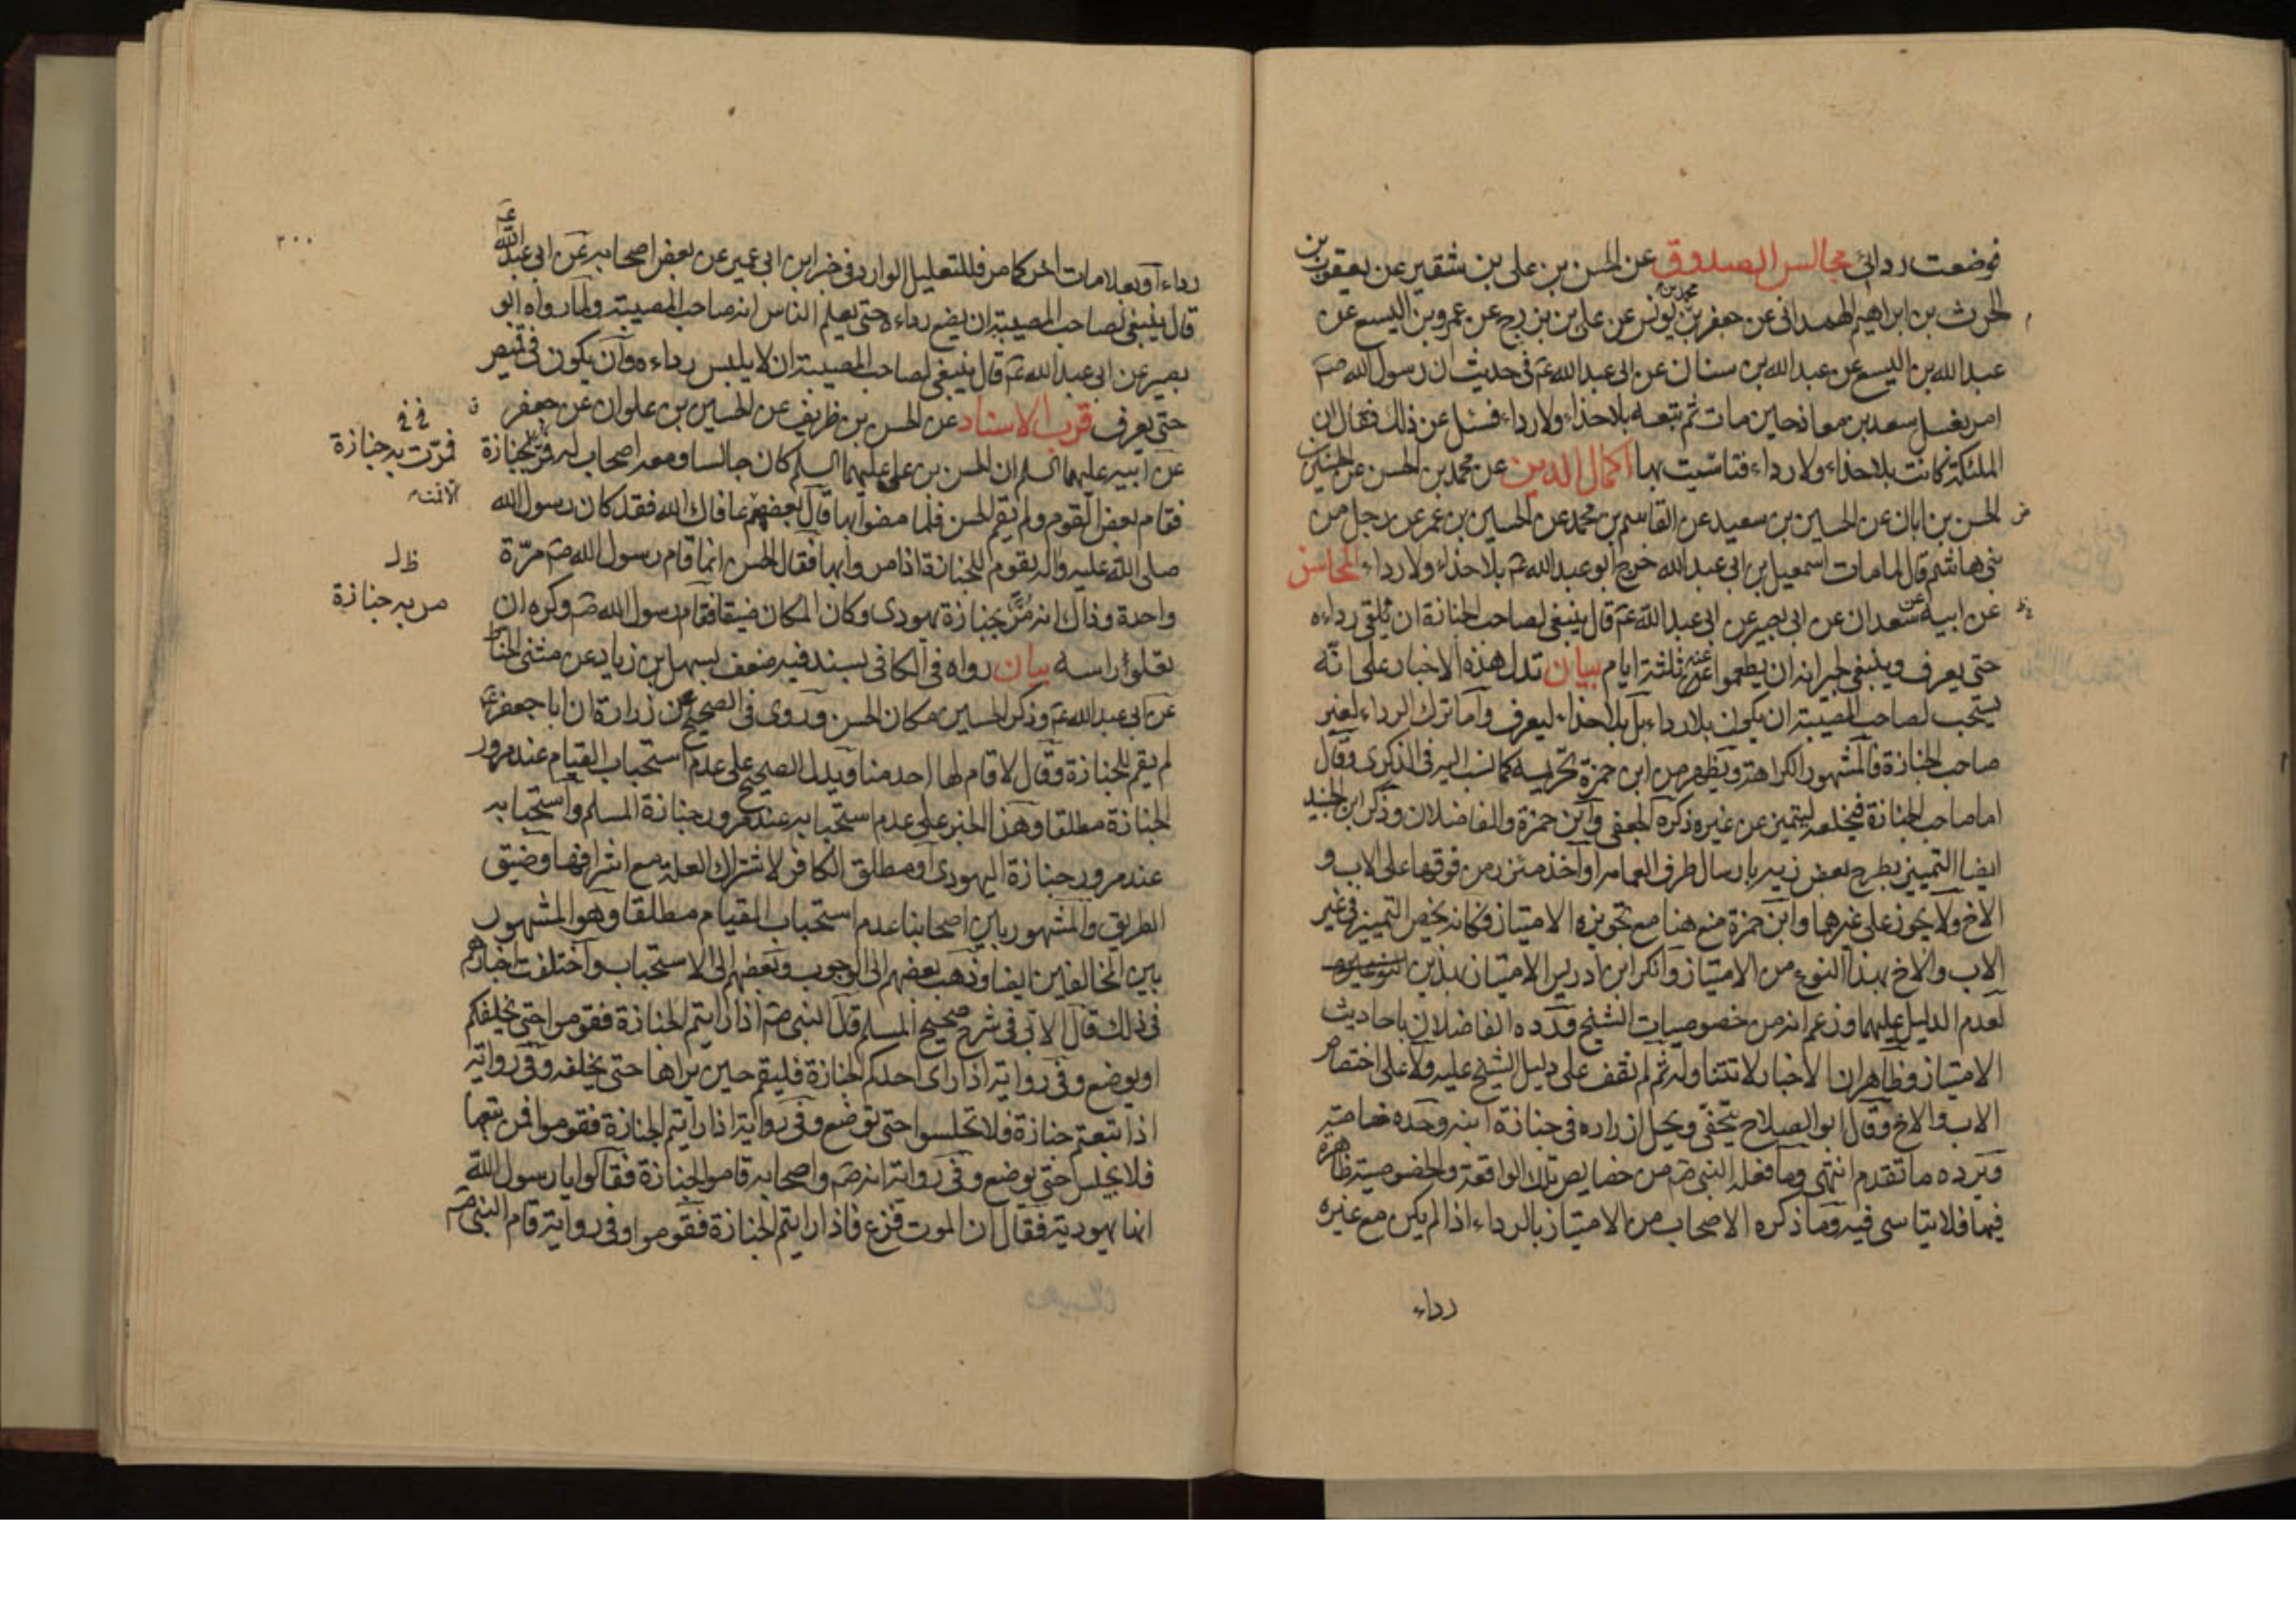 فوضعت ردائي مجالس الصدوق عن الحسن بن علي بن شقير عن يعقوب بن
الحرث بن ابراهيم الهمداني عن جعفر بن محمد بن يونس عن علي بن بزرج عن عمرو بن اليسع عن
عبد الله بن اليسع عن عبد الله بن سنان عن ابي عبد الله عم في حديث ان رسول الله صم
امر بغسل سعد بن معاذ حين مات ثم تبعه بلا حذاء ولا رداء فسئل عن ذلك فقال ان
الملئكة كانت بلا حذاء ولا رداء فتاسّيت بها اكمال الدين عن محمد بن الحسن عن الحسين بن
الحسن بن ابان عن الحسين بن سعيد عن القاسم بن محمد عن الحسين بن عمر عن رجل من
بني هاشم قال لما مات اسمعيل بن ابي عبد الله خرج ابو عبد الله عم بلا حذاء ولا رداء المحاسن
عن ابيه عن سعدان عن ابي بصير عن ابي عبد الله عم قال ينبغي لصاحب الجنازة ان يلقي رداءه
حتى يعرف وينبغي لجيرانه ان يطعموا عنه ثلثة ايام بيان تدل هذه الاخبار على انّه
يستحب لصاحب المصيبة ان يكون بلا رداء بل بلا حذاء ليعرف واما ترك الرداء لغير
صاحب الجنازة فالمشهور الكراهة ويظهر من ابن حمزة تحريمه كما نسب اليه في الذكرى وقال
اما صاحب الجنازة فيخلعه ليتميز عن غيره ذكره الجعفي وابن حمزة والفاضلان وذكر ابن الجنيد
ايضا التميز بطرح بعض زيه بارسال طرف العمامه او اخذ مئزر من فوقها على الاب و
الاخ ولا يجوز على غيرهما وابن حمزة منع هنا مع تجويزه الامتياز فكانه يخص التميز في غير
الاب والاخ بهذا النوع من الامتياز وانكر ابن ادريس الامتياز بذين
لعدم الدليل عليهما وزعم انه من خصوصيات الشيخ وردّه الفاضلان باحاديث
الامتياز وظاهر ان الاخبار لا تتناوله ثم لم نقف على دليل الشيخ عليه ولا على اختصاص
الاب والاخ وقال ابو الصلاح يتحفى ويحل ازراره في جنازة ابنه وجده خاصة
ويرده ما تقدم انتهى وما فعله النبي صم من خصايص تلك الواقعة والخصوصية ظاهرة
فيها فلا يتاسى فيه وما ذكره الاصحاب من الامتياز بالرداء اذا لم يكن مع غيره
رداء
٢٠٠
رداء او بعلامات اخر كما مر فللتعليل الوارد في خبر ابن ابي عمير عن بعض اصحابه عن ابي عبد الله عم
قال ينبغي لصاحب المصيبة ان يضع رداءه حتى يعلم الناس انه صاحب المصيبة ولما رواه ابو
بصير عن ابي عبد الله عم قال ينبغي لصاحب المصيبة ان لا يلبس رداءه وان يكون في قميص
حتى يعرف قرب الاسناد عن الحسن بن ظريف عن الحسين بن علوان عن جعفر
عن ابيه عليهما السلم ان الحسن بن علي عليهما السلم كان جالسا ومعه اصحاب له فمرّ بجنازة
فمرّت به جنازة
فقام بعض القوم ولم يقم الحسن فلما مضوا بها قال بعضهم عافاك الله فقد كان رسول الله
صلى الله عليه واله يقوم للجنازة اذا مروا بها فقال الحسن انما قام رسول الله صم مرّة
ظ ل
مر به جنازة
واحدة وذاك انه مُرَّ بجنازة يهودي وكان المكان ضيقا فقام رسول الله صم وكره ان
تعلو راسه بيان رواه في الكافي بسند فيه ضعف بسهل بن زياد عن مثنى الحناط
عن ابي عبد الله عم وذكر الحسين مكان الحسن وروى في الصحيح عن زرارة ان ابا جعفر عم
لم يقم للجنازة وقال لا قام لها احد منا ويدل الصحيح على عدم استحباب القيام عند مرور
الجنازة مطلقا وهذا الخبر على عدم استحبابه عند مرور جنازة المسلم واستحبابه
عند مرور جنازة اليهودي او مطلق الكافر لاشتراك العلة مع اشرافها وضيق
الطريق والمشهور بين اصحابنا عدم استحباب القيام مطلقا وهو المشهور
بين المخالفين ايضا وذهب بعضهم الى الوجوب وبعضهم الى الاستحباب واختلفت اخبارهم
في ذلك قال الابي في شرح صحيح المسلم قال النبي صم اذا رايتم الجنازة فقوموا حتى تخلفكم
او يوضع وفي رواية اذا راى احدكم الجنازة فليقم حين يراها حتى يخلفه وفي رواية
اذا تبعتم جنازة فلا تجلسوا حتى توضع وفي رواية اذا رايتم الجنازة فقوموا فمن تبعها
فلا يجلس حتى توضع وفي رواية انه صم واصحابه قاموا لجنازة فقالوا يا رسول الله
انها يهودية فقال ان الموت فزع فاذا رايتم الجنازة فقوموا وفي رواية قام النبي صم